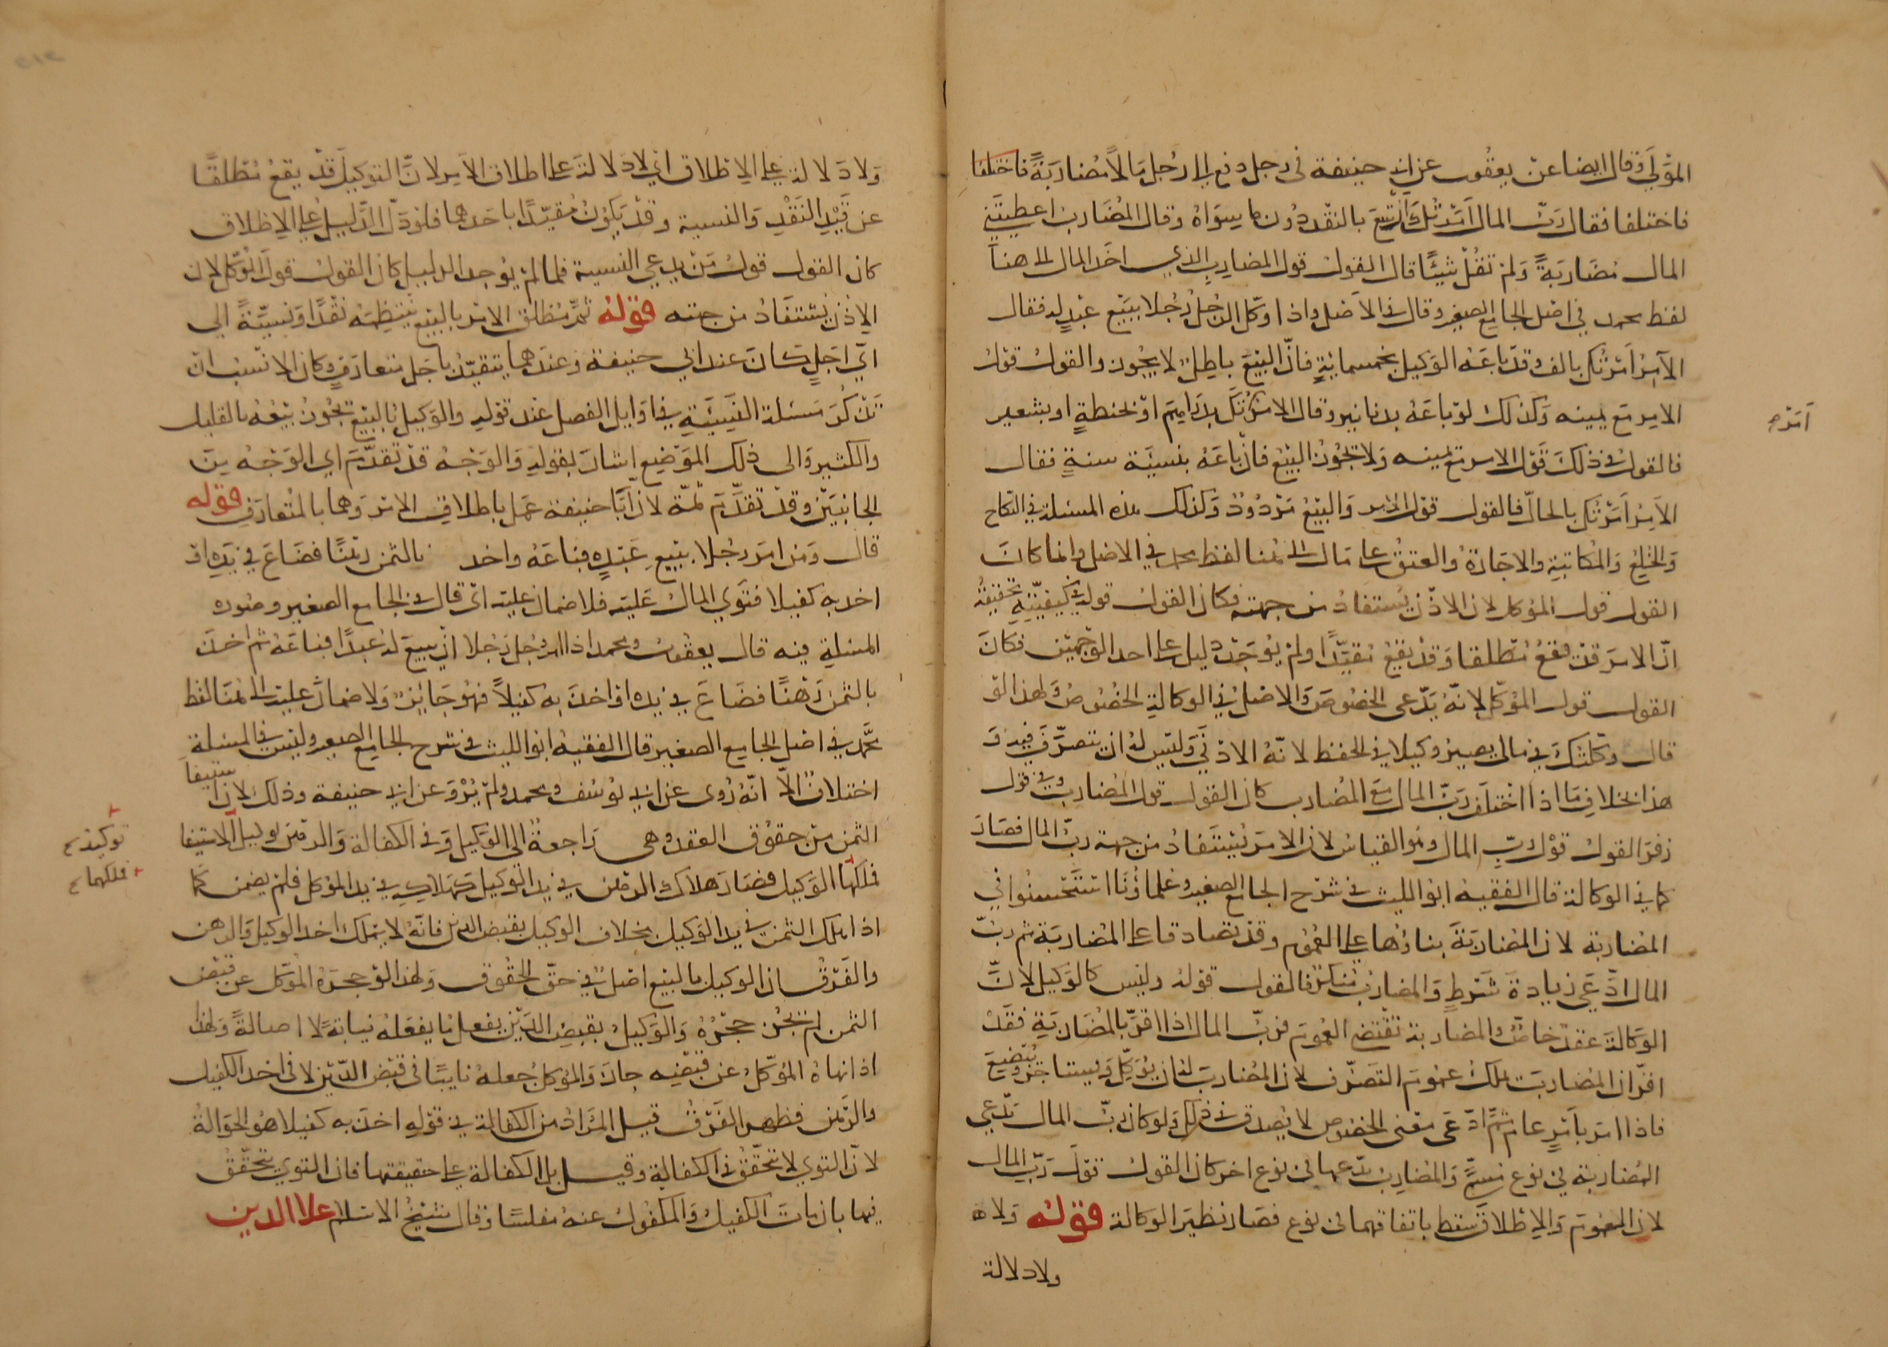 المؤلى وقال ايضا عن يعقوب عن ابي حنيفة في رجل دفع الى رجل مالا مضاربة فاختلفا
فاختلفا فقال رب المال امرتك ان تبيع بالنقد دون ما سواه وقال المضارب اعطيتني
المال مضاربة ولم تقل شيئا قال القول قول المضارب الذي اخذ المال الى هنا
لفظ محمد في اصل الجامع الصغير وقال في الاصل واذا وكل الرجل رجلا ببيع عبد له فقال
الآمر امرتك بالف وقد باعه الوكيل بخمسمائة فان البيع باطل لا يجوز والقول قول
الامر مع يمينه وكذلك لو باعه بدنانير وقال الامر امرتك بدراهم او بحنطة او بشعير
فالقول في ذلك قول الامر مع يمينه ولا يجوز البيع فان باعه بنسيئة سنة فقال
الآمر امرتك بالحال فالقول قول الامر والبيع مردود وكذلك هذه المسئلة في النكاح
والخلع والمكاتبة والاجارة والعتق على مال الى هنا لفظ محمد في الاصل وانما كان
القول قول الموكل لان الاذن يستفاد من جهته فكان القول قوله في كيفيته تحقيقه
ان الامر قد يقع مطلقا وقد يقع مقيدا ولم يوجد دليل على احد الوجهين فكان
القول قول الموكل لانه يدعي الخصوص والاصل في الوكالة الخصوص ولهذا لو
قال وكلتك في مالي يصير وكيلا في الحفظ لانه الادنى وليس له ان يتصرف فيه و
هذا بخلاف ما اذا اختلف رب المال مع المضارب كان القول قول المضارب وفي قول
زفر القول قول رب المال وهو القياس لان الامر يستفاد من جهة رب المال فصار
كما في الوكالة قال الفقيه ابو الليث في شرح الجامع الصغير وعلماؤنا استحسنوا في
المضاربة لان المضاربة بناؤها على العموم وقد تصادقا على المضاربة ثم رب
المال ادعى زيادة شرط والمضارب منكر فالقول قوله وليس كالوكيل لان
الوكالة عقد خاص والمضاربة تقتضي العموم فرب المال اذا اقر بالمضاربة فقد
اقر ان المضارب ملك عموم التصرف لان المضارب له ان يوكل ويستاجر ويبضع
فاذا امر بامر عام ثم ادعى معنى الخصوص لا يصدق في ذلك ولو كان رب المال يدعي
المضاربة في نوع مسمى والمضارب يدعيها في نوع اخر كان القول قول رب المال
لان العموم والاطلاق سقط باتفاقهما في نوع فصار نظير الوكالة قوله ولا
ولا دلالة
امرته
ولا دلالة على الاطلاق اي لا دلالة على اطلاق الامر لان التوكيل قد يقع مطلقا
عن قيد النقد والنسية وقد يكون مقيدا باحدهما فلو دل الدليل على الاطلاق
كان القول قول من يدعي النسية فلما لم يوجد الدليل كان القول قول الموكل لان
الاذن يستفاد من جهته قوله ثم مطلق الامر بالبيع ينتظمه نقدا ونسيئة الى
اي اجل كان عند ابي حنيفة وعندهما يتقيد باجل متعارف وكان الانسب ان
تذكر مسئلة النسيئة في اوايل الفصل عند قوله والوكيل بالبيع يجوز بيعه بالقليل
والكثير والى ذلك الموضع اشار بقوله والوجه قد تقدم اي الوجه من
الجانبين وقد تقدم ثمة لان ابا حنيفة عمل باطلاق الامر وهما بالمتعارف قوله
قال ومن امر رجلا ببيع عبده فباعه واخذ بالثمن رهنا فضاع في يده او
اخذ به كفيلا فتوي المال عليه فلا ضمان عليه اي قال في الجامع الصغير وصورة
المسئلة فيه قال يعقوب ومحمد اذا امر رجل رجلا ان يبيع له عبدا فباعه ثم اخذ
بالثمن رهنا فضاع في يده او اخذ به كفيلا فهو جائز ولا ضمان عليه الى هنا لفظ
محمد في اصل الجامع الصغير قال الفقيه ابو الليث في شرح الجامع الصغير وليس في المسئلة
اختلاف الا انه روى عن ابي يوسف ومحمد ولم يرو عن ابي حنيفة وذلك لان استيفا
الثمن من حقوق العقد وهي راجعة الى الوكيل وفي الكفالة والرهن الاستيفا
فملكها الوكيل فصار هلاك الرهن في يد الوكيل كهلاكه في يد الموكل فلم يضمن كما
اذا هلك الثمن في يد الوكيل بخلاف الوكيل بقبض الدين فانه لا يملك اخذ الوكيل والرهن
والفرق ان الوكيل بالبيع اصل في حق الحقوق ولهذا لو حجره الموكل عن قبض
الثمن لم يجز حجره والوكيل بقبض الدين يفعل ما يفعله نيابة لا اصالة ولهذا
اذا نهاه الموكل عن قبضه جاز والموكل جعله نايبا في قبض الدين لا في اخذ الكفيل
والرهن فظهر الفرق قيل المراد من الكفالة في قوله اخذ به كفيلا هو الحوالة
لان التوي لا تتحقق في الكفالة وقيل بل الكفالة على حقيقتها فان التوي يتحقق
فيها بان مات الكفيل والمكفول عنه مفلسا وقال شيخ الاسلام علاء الدين
توكيد
فلكهما